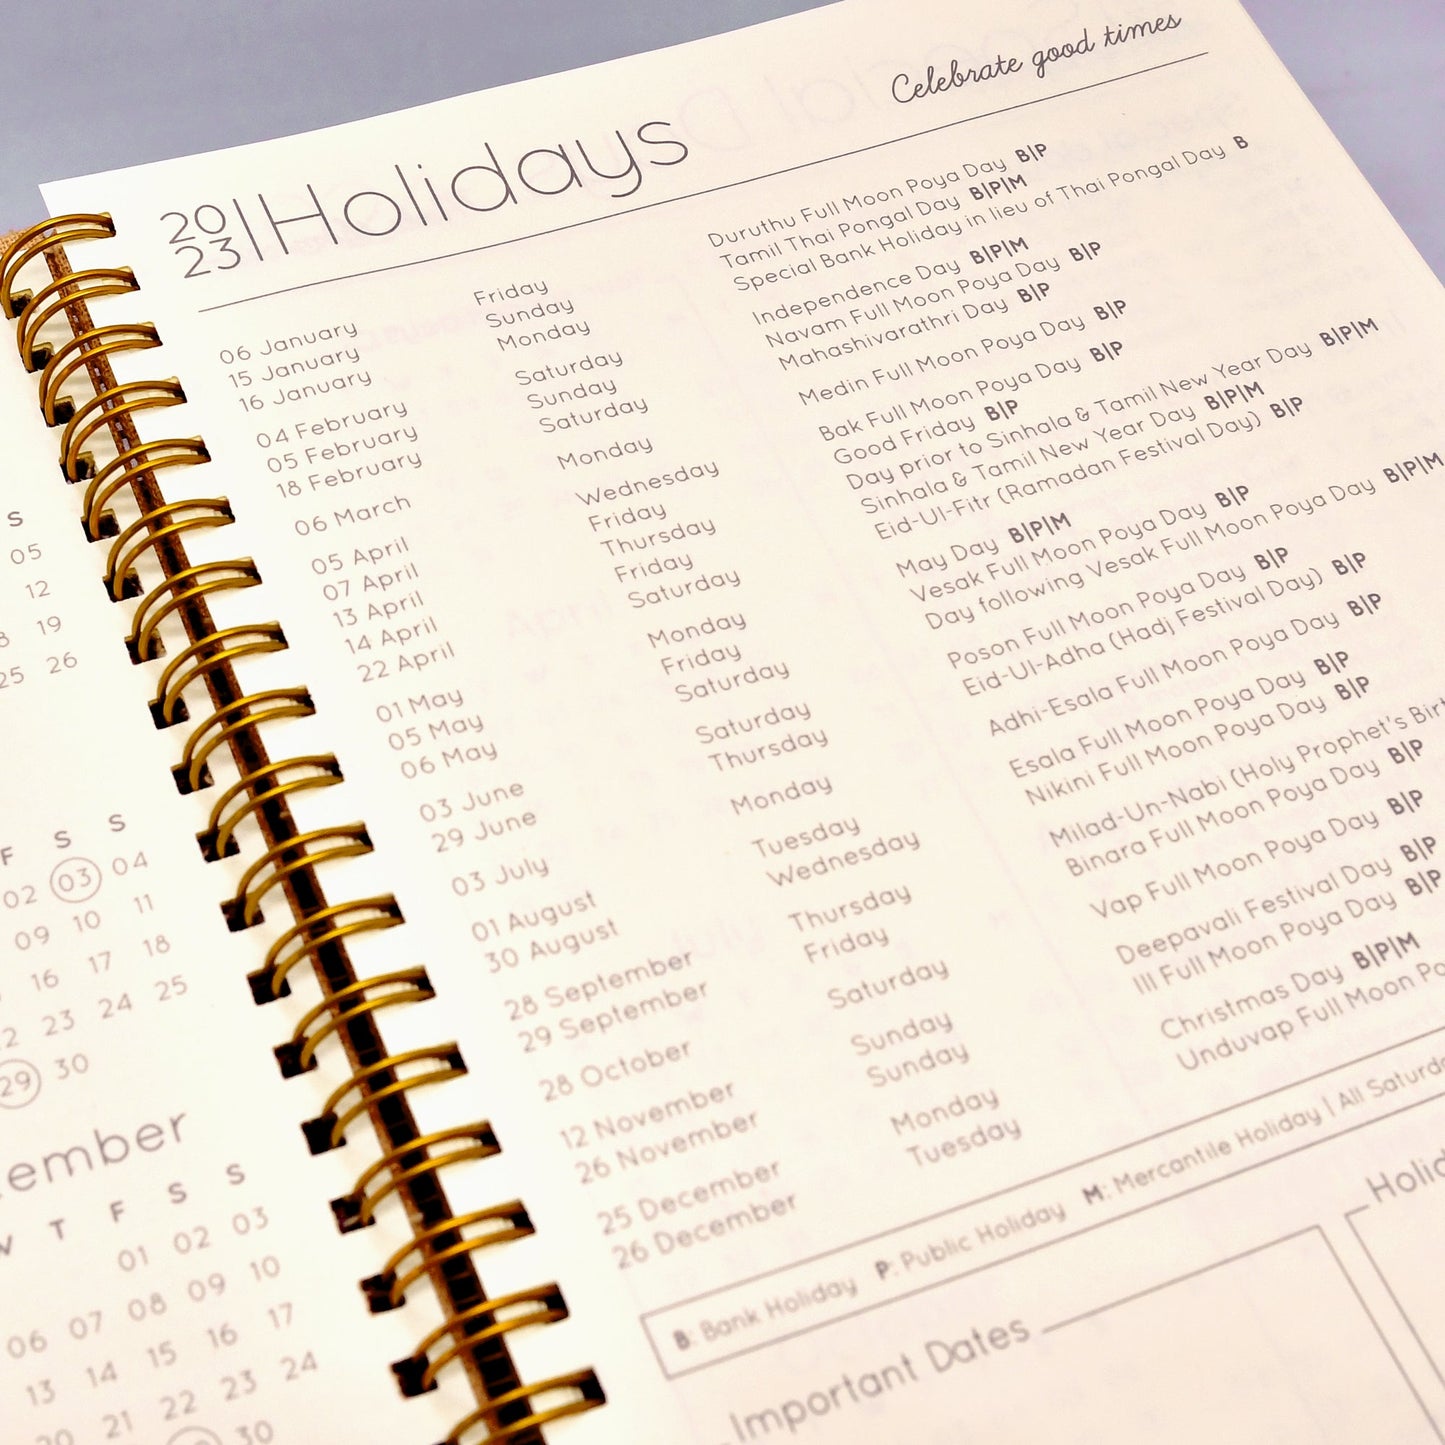 Celebrate good times
2023 | Holidays
06 January Friday Duruthu Full Moon Poya Day B|P
15 January Sunday Tamil Thai Pongal Day B|P|M
16 January Monday Special Bank Holiday in lieu of Thai Pongal Day B
04 February Saturday Independence Day B|P|M
05 February Sunday Navam Full Moon Poya Day B|P
18 February Saturday Mahashivarathri Day B|P
06 March Monday Medin Full Moon Poya Day B|P
05 April Wednesday Bak Full Moon Poya Day B|P
07 April Friday Good Friday B|P
13 April Thursday Day prior to Sinhala & Tamil New Year Day B|P|M
14 April Friday Sinhala & Tamil New Year Day B|P|M
22 April Saturday Eid-Ul-Fitr (Ramadan Festival Day) B|P
01 May Monday May Day B|P|M
05 May Friday Vesak Full Moon Poya Day B|P
06 May Saturday Day following Vesak Full Moon Poya Day B|P|M
03 June Saturday Poson Full Moon Poya Day B|P
29 June Thursday Eid-Ul-Adha (Hadj Festival Day) B|P
03 July Monday Adhi-Esala Full Moon Poya Day B|P
01 August Tuesday Esala Full Moon Poya Day B|P
30 August Wednesday Nikini Full Moon Poya Day B|P
28 September Thursday Milad-Un-Nabi (Holy Prophet's
29 September Friday Binara Full Moon Poya Day B|P
28 October Saturday Vap Full Moon Poya Day B|P
12 November Sunday Deepavali Festival Day B|P
26 November Sunday Ill Full Moon Poya Day B|P
25 December Monday Christmas Day B|P|M
26 December Tuesday Unduvap Full Moon
B: Bank Holiday P: Public Holiday M: Mercantile Holiday | All
Important Dates
S
05
12
19
25 26
F S S
02 03 04
09 10 11
16 17 18
23 24 25
29 30
T F S S
01 02 03
06 07 08 09 10
13 14 15 16 17
21 22 23 24
30